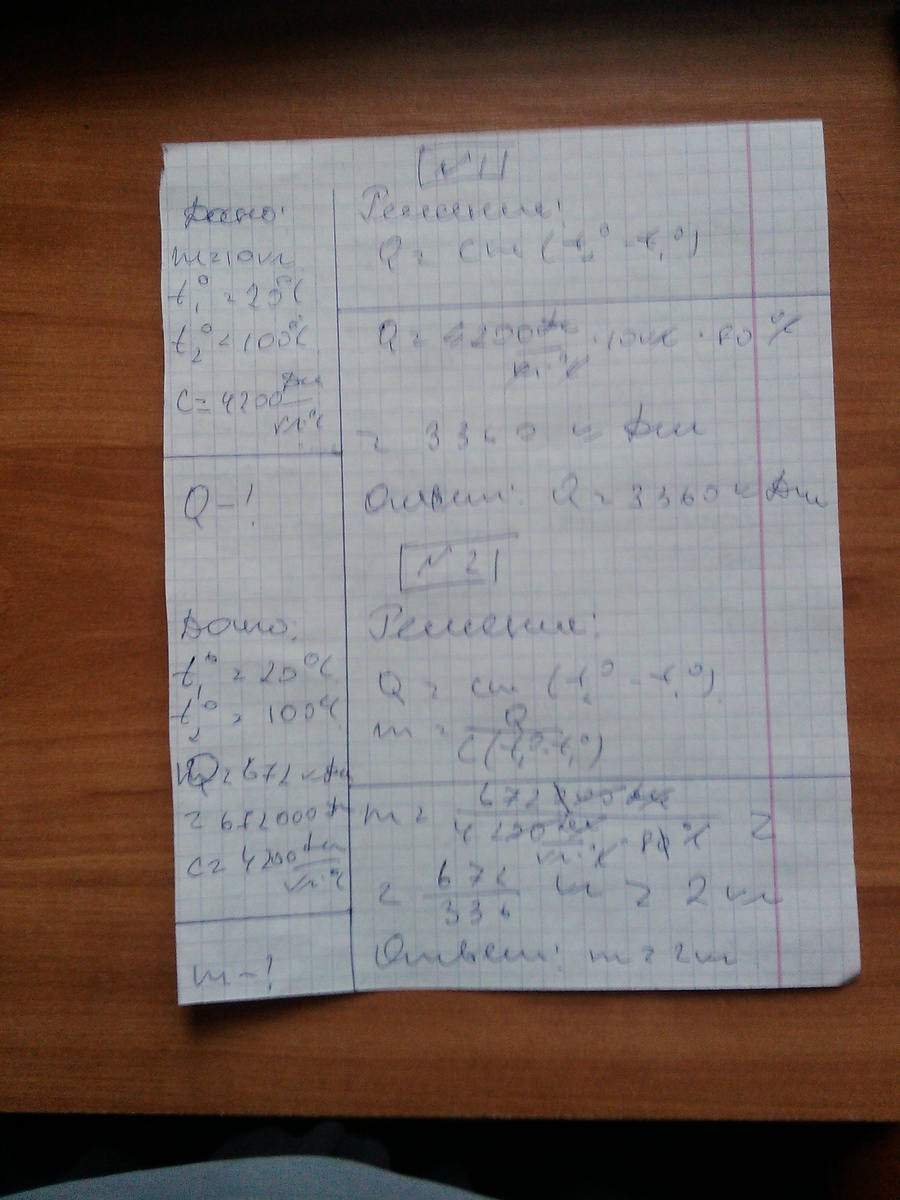 №1
Дано:
m=10кг
t₁° = 20°C
t₂° = 100°C
c = 4200 Дж/кг·°C
Q - ?
Решение:
Q = cm (t₂° - t₁°)
Q = 4200 Дж/кг·°C · 10кг · 80°C
= 3360 к Дж
Ответ: Q = 3360 кДж
№2
Дано:
t₁° = 20°C
t₂° = 100°C
Q = 672 кДж
= 672000 Дж
c = 4200 Дж/кг·°C
m - ?
Решение:
Q = cm (t₂° - t₁°)
m = Q / c(t₂° - t₁°)
m = 672000 Дж / 4200 Дж/кг·°C · 80°C =
= 672/336 кг = 2 кг
Ответ: m = 2кг